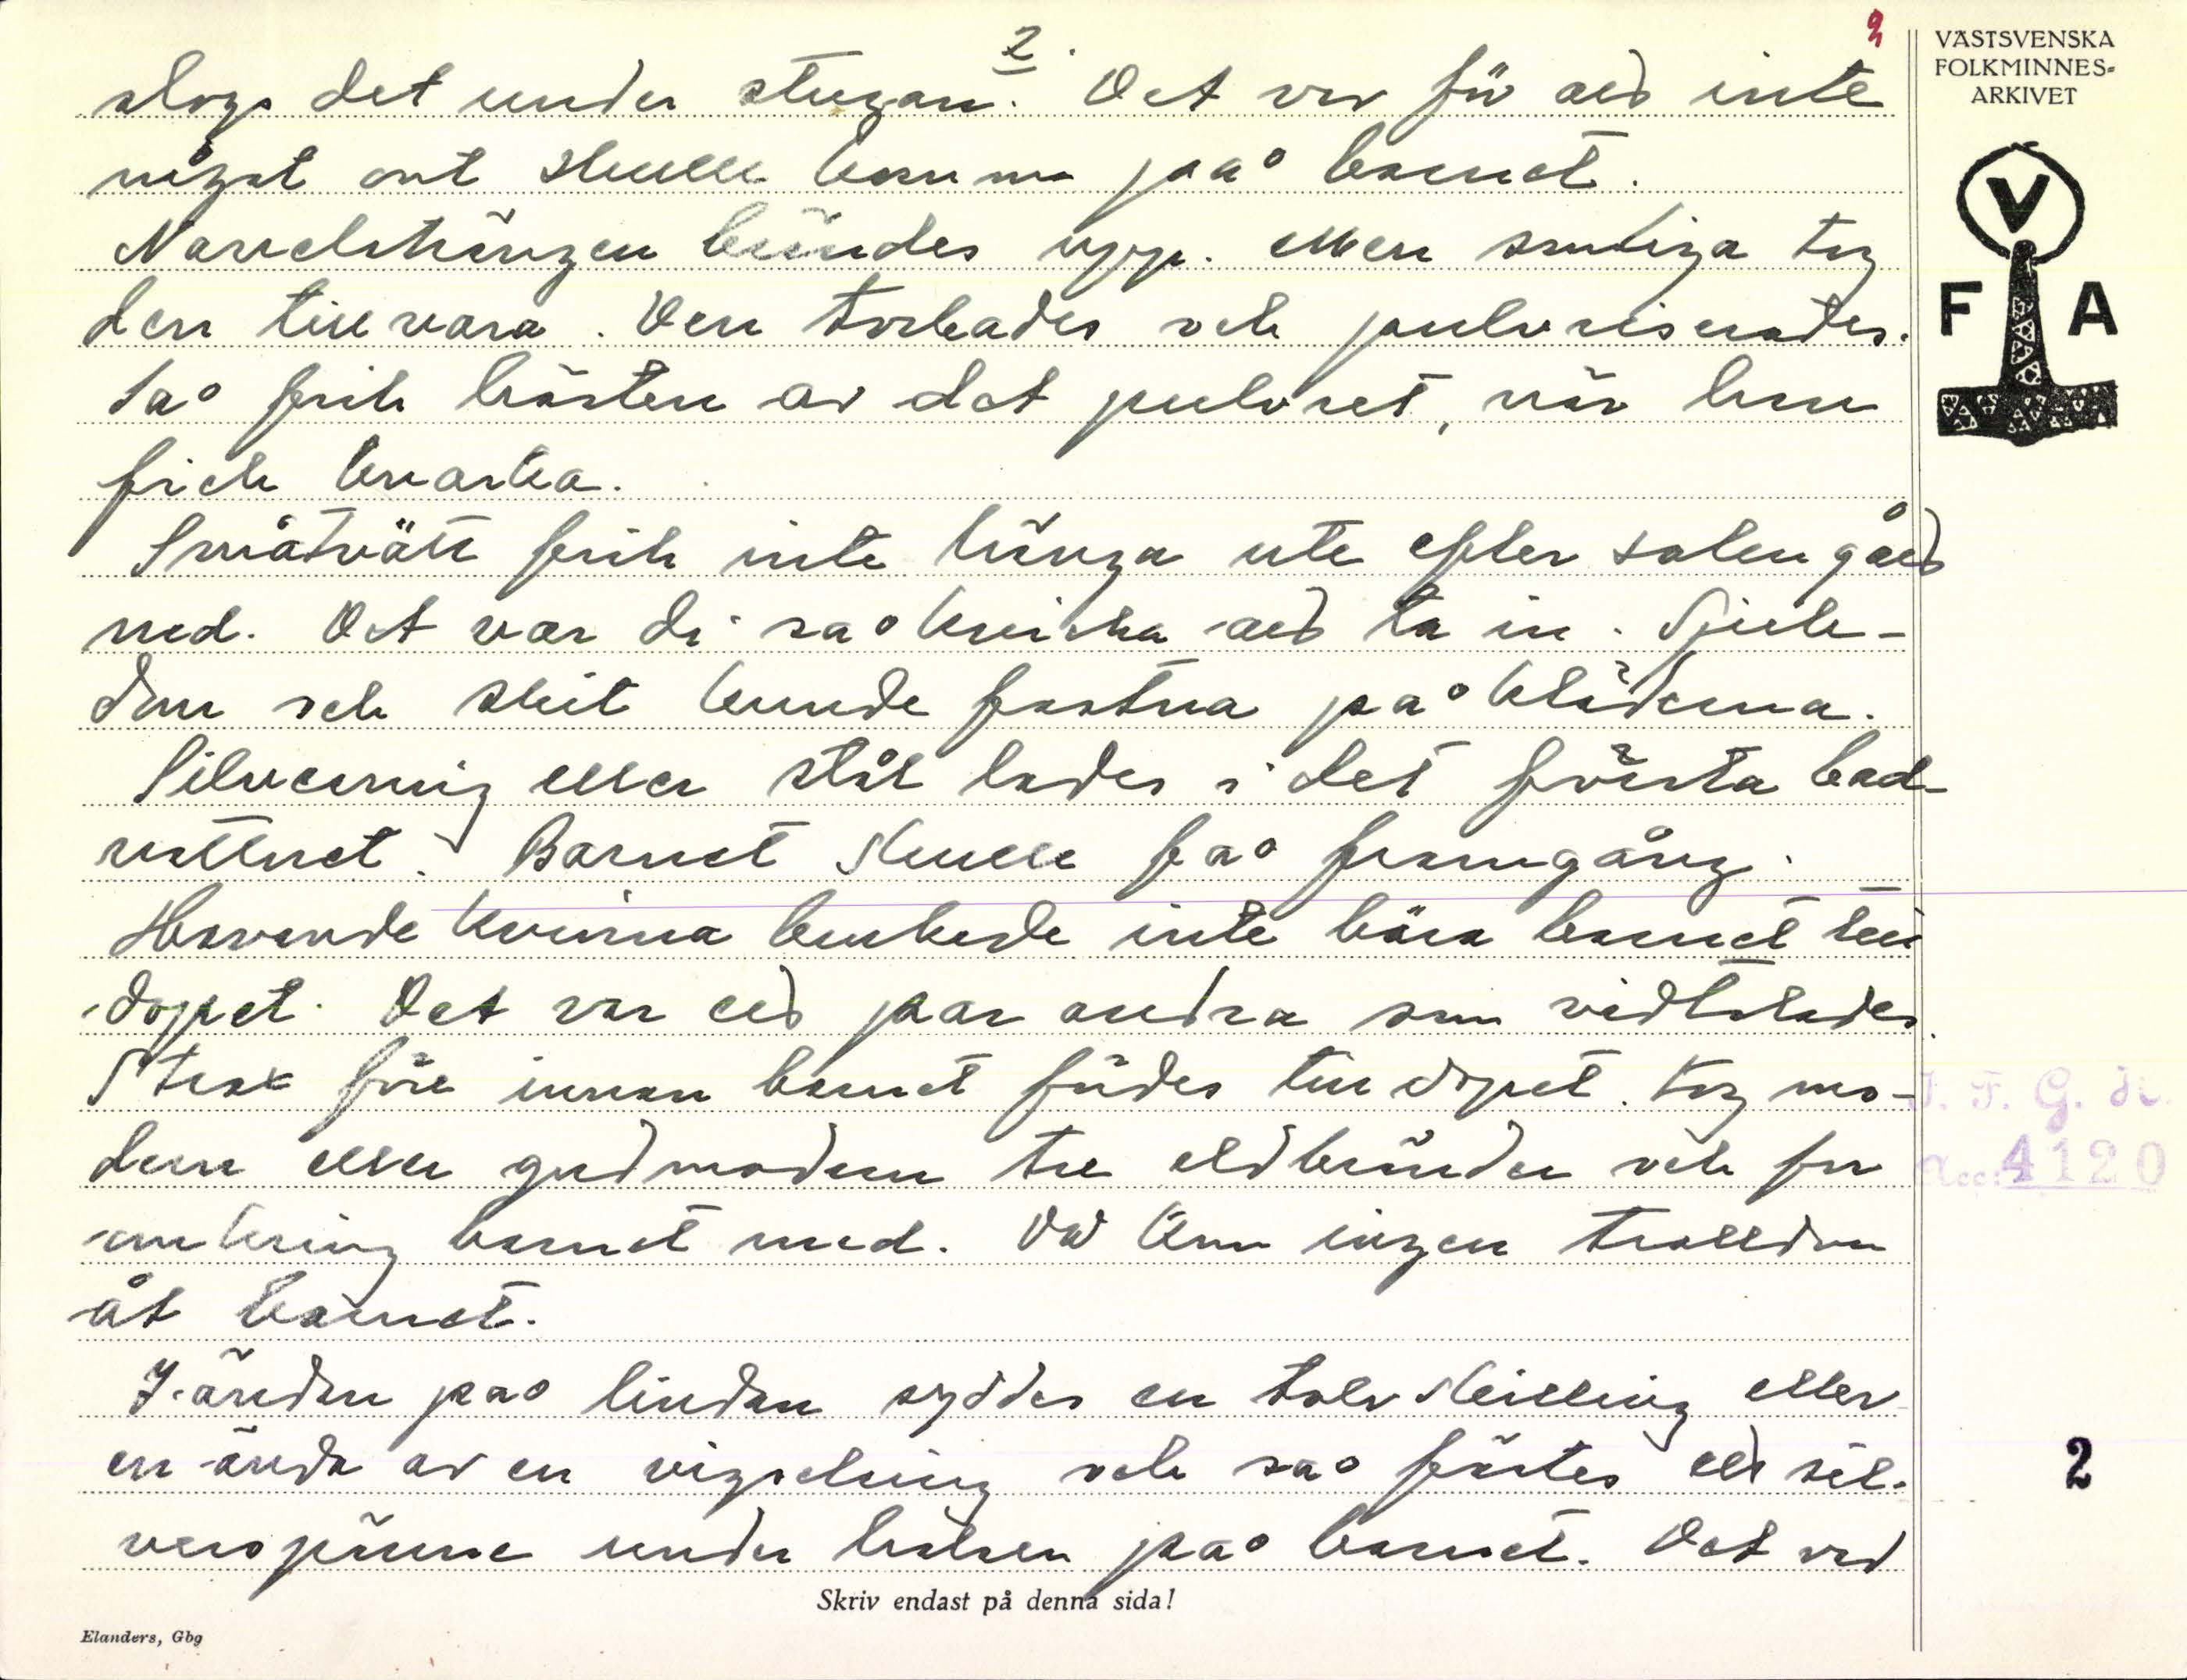 2.
3
VÄSTSVENSKA
FOLKMINNES-
ARKIVET
V
F A
slogs det under stugan. Det var för att inte
något ont skulle komma på barnet.
Navelsträngen bändes upp. Men somliga tog
den till vara. Den torkades och pulvriserades.
Så fick hästen av det pulvret, när han
fick kvarka.
Småtvätt fick inte hänga ute efter solen gått
ned. Det var di så kinkiga att ta in. Sjuk-
dom och skit kunde fastna på kläderna.
Silverring eller stål lades i det första bad-
vattnet. Barnet skulle få framgång.
Havande kvinna brukade inte bära barnet till
dopet. Det var ett par andra som vidtalades.
Strax före innan barnet födes till dopet. tog mo-
dern eller gudmodern tre eldbränder och for
omkring barnet med. Då kom ingen trolldom
åt barnet.
I ändan på lindan syddes en tolvskilling eller
en ända av en vigselring och så fästes ett sil-
verspänne under halsen på barnet. Det var
J. F. G. H.
Acc: 4120
2
Skriv endast på denna sida!
Elanders, Gbg